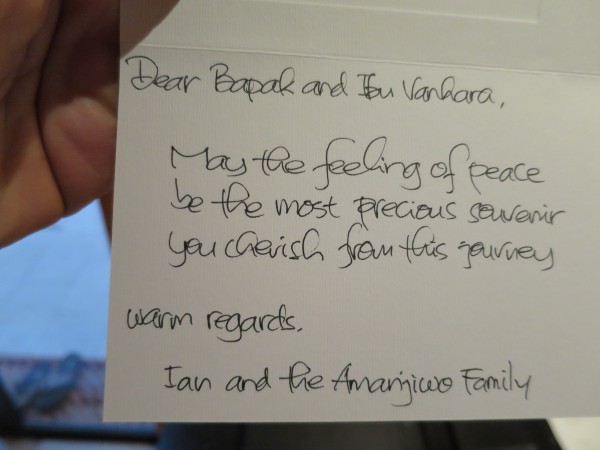 Dear Bapak and Ibu Vankara,
May the feeling of peace
be the most precious souvenir
you cherish from this journey
warm regards,
Ian and the Amanjiwo Family